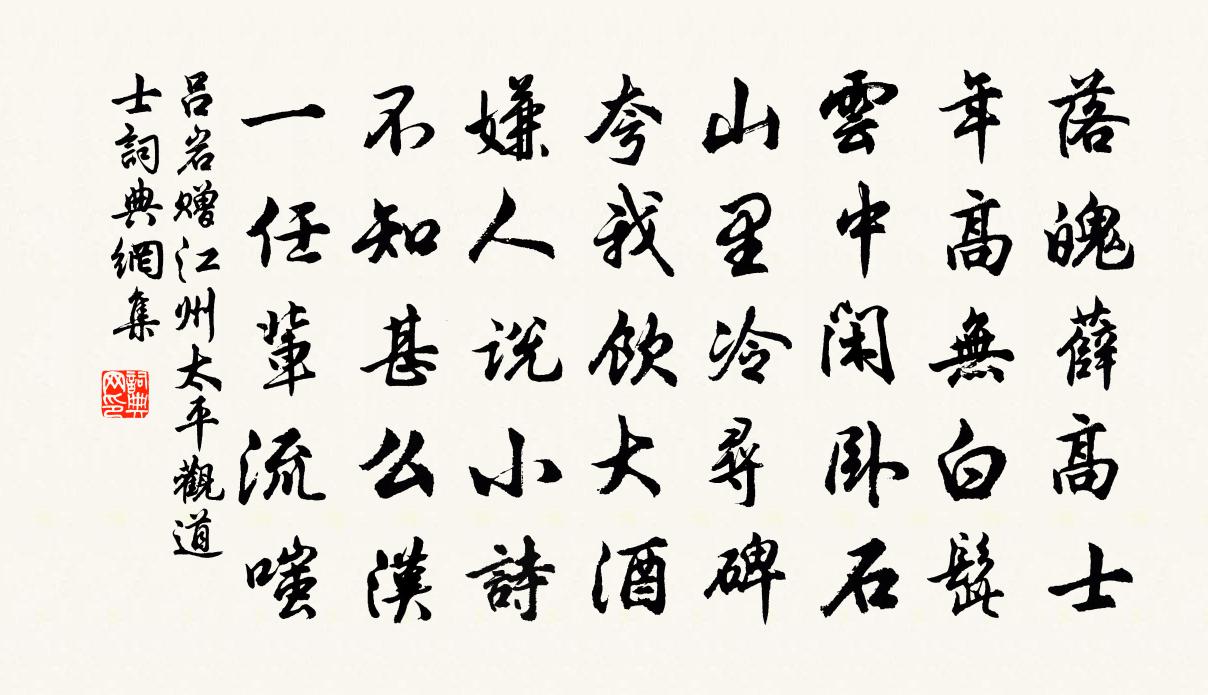 落魄薛高士
年高無白髭
雲中閑卧石
山里冷尋碑
夸我飲大酒
嫌人説小詩
不知甚么漢
一任輩流嗤
吕岩赠江州太平觀道
士詞典網集
詞典
网印